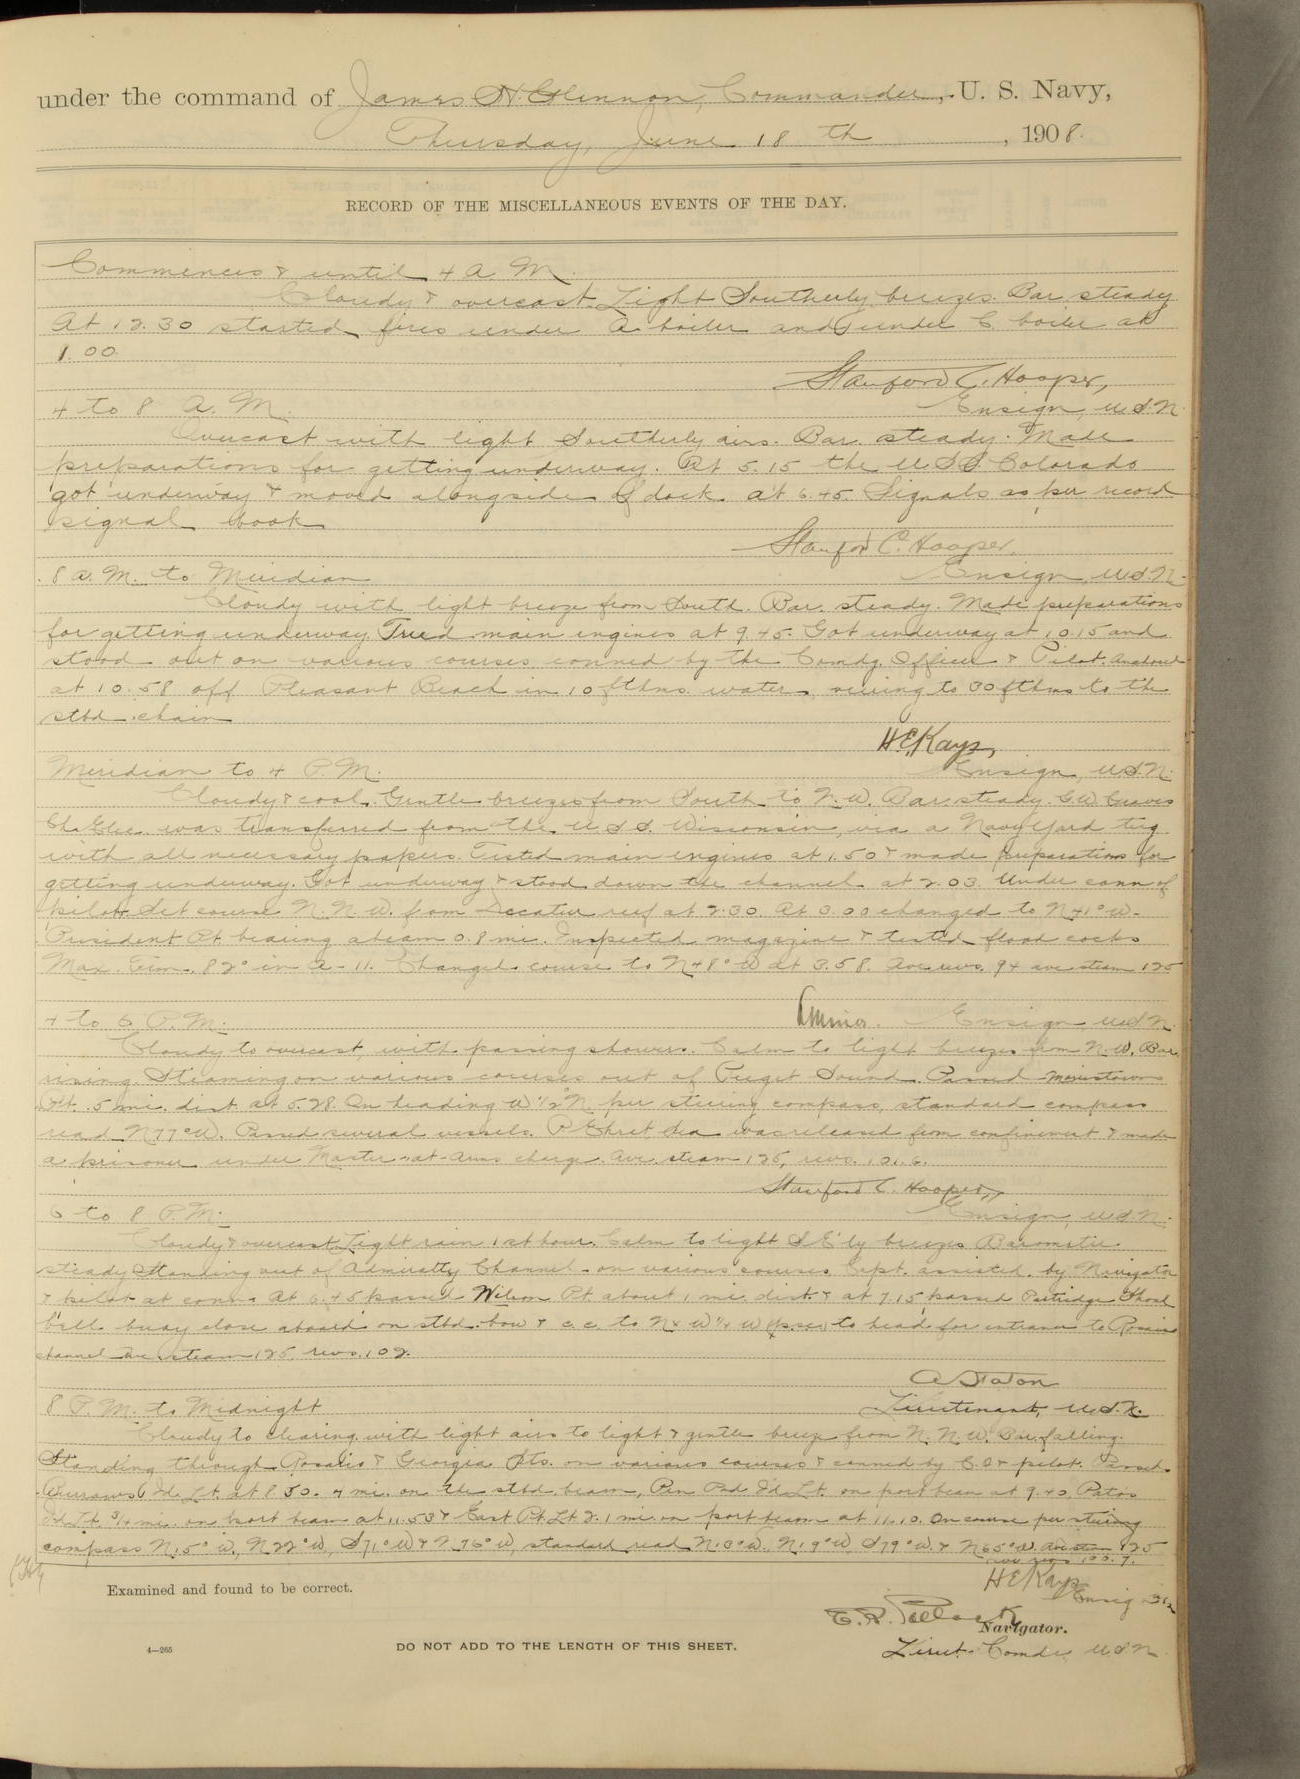 under the command of James H. Glennon, Commander, U. S. Navy,
Thursday, June 18th, 1908.
RECORD OF THE MISCELLANEOUS EVENTS OF THE DAY.
Commences & until 4 A M.
Cloudy & overcast. Light Southerly breezes. Bar. steady
At 12.30 started fires under A boiler and under C boiler at
1.00.
Stanford C. Hooper,
4 to 8 A. M.
Ensign, U.S.N.
Overcast with light Southerly airs. Bar. steady. Made
preparations for getting underway. At 5.15 the U S S Colorado
got underway & moved alongside of dock at 6.45. Signals as per record
signal book
Stanford C. Hooper,
8 a. M. to Meridian
Ensign, U.S.N.
Cloudy with light breeze from South. Bar. steady. Made preparations
for getting underway. Tried main engines at 9.45. Got underway at 10.15 and
stood out on various courses conned by the Comdg. Officer & Pilot. Anchored
at 10.58 off Pleasant Beach in 10 fthms. water, veering to 30 fthms to the
stbd. chain
H.E. Kays,
Meridian to 4 P.M.
Ensign, U.S.N.
Cloudy & cool. Gentle breezes from South to N.W. Bar. steady. C.W. Graves
Ch. Elec. was transferred from the U.S.S. Wisconsin, via a Navy Yard tug
with all necessary papers. Tested main engines at 1.50 & made preparations for
getting underway. Got underway & stood down the channel at 2.03. Under conn of
pilot. Set course N.N.W. from Decatur reef at 2.30. At 3.00 changed to N41°W.
President Pt. bearing abeam 0.8 mi. Inspected magazine & tested flood cocks
Max. Tem. 82° in A-11. Changed course to N48°W at 3.58. Ave revs. 94 ave steam 125
4 to 6 P.M.
Ensign, U.S.N.
Cloudy to overcast, with passing showers. Calm to light breezes from N.W. Bar.
rising. Steaming on various courses out of Puget Sound. Passed
Pt. .5 mi. dist. at 5.28. On heading W½N per steering compass, standard compass
read N77°W. Passed several vessels. P. Ehret Sea was released from confinement & made
a prisoner under Master-at-Arms charge. Ave. steam 125, revs. 101.6.
Stanford C. Hooper,
6 to 8 P.M.
Ensign, U.S.N.
Cloudy & overcast. Light rain 1st hour. Calm to light S.E'ly breezes. Barometer
steady. Standing out of Admiralty Channel on various courses. Capt. assisted by Navigator
& pilot at conn. At 6.45 passed Wilson Pt. about 1 mi. dist. & at 7.15 passed Partridge Shoal
bell buoy close aboard on stbd. bow & c.c. to NxW¼W to head for entrance to Rosario
channel. Ave. steam 125, revs. 102.
8 P.M. to Midnight
Lieutenant, U.S.N.
Cloudy to clearing with light airs to light & gentle breeze from N.N.W. Bar. falling.
Standing through Rosario & Georgia Sts. on various courses & conned by C.O. & pilot. Passed
Burrows Id. Lt. at 8.50. 4 mi. on the stbd. beam, Id Lt. on port beam at 9.40, Patos
Id. Lt. ¾ mi. on port beam at 11.53 & East Pt. Lt 2.1 mi. on port beam at 11.10. On course per steering
compass N15°W, N22°W, S71°W & N76°W, standard read N10°W, N19°W, S79°W & N65°W. Ave steam 125
ave revs 100.7.
H E Kays
Ensign
Examined and found to be correct.
Navigator.
Lieut. Comdr U.S.N.
4—265
DO NOT ADD TO THE LENGTH OF THIS SHEET.